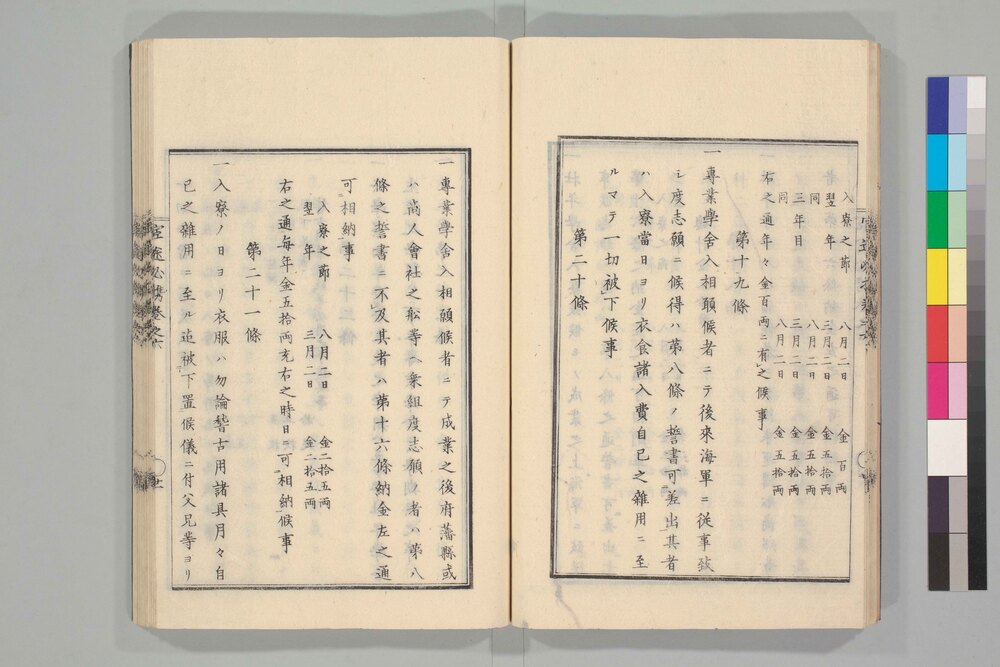 入寮之節 八月二日 金百両
翌年 三月二日 金五拾両
同 八月二日 金五拾両
三年目 三月二日 金五拾両
同 八月二日 金五拾両
右之通年々金百両ニ有之候事
第十九條
一專業學舎入相願候者ニテ後來海軍ニ従事致
シ度志願ニ候得ハ第八條ノ誓書可差出其者
ハ入寮當日ヨリ衣食諸入費自己之雜用ニ至
ルマテ一切被下候事
第二十條
一專業學舎入相願候者ニテ成業之後府藩縣或
ハ商人會社之舩等ヘ乗組度志願ノ者ハ第八
條之誓書ニ不及其者ハ第十六條納金左之通
可相納事
入寮之節 八月二日 金二拾五両
翌年 三月二日 金二拾五両
右之通毎年金五拾両充右之時日ニ可相納候事
第二十一條
一入寮ノ日ヨリ衣服ハ勿論稽古用諸具月々自
己之雜用ニ至ル迠被下置候儀ニ付父兄等ヨリ